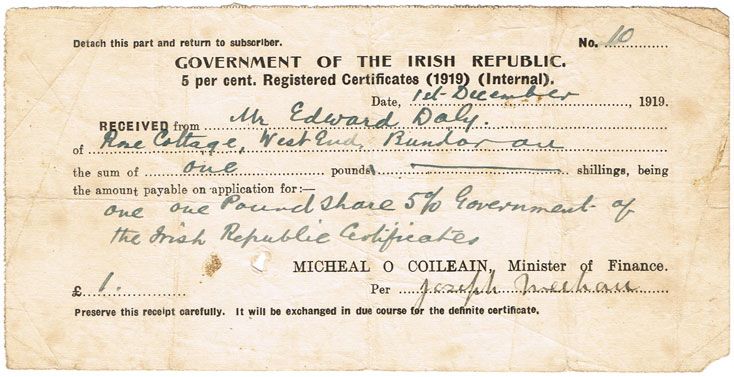 Detach this part and return to subscriber. No. 10
GOVERNMENT OF THE IRISH REPUBLIC.
5 per cent. Registered Certificates (1919) (Internal).
Date, 1st December, 1919.
RECEIVED from Mr Edward Daly.
of Rose Cottage, West End, Bundoran
the sum of one pounds shillings, being
the amount payable on application for:—
one one Pound share 5% Government of
the Irish Republic Certificates
MICHEAL O COILEAIN, Minister of Finance.
£ 1. Per Joseph Meehan
Preserve this receipt carefully. It will be exchanged in due course for the definite certificate.